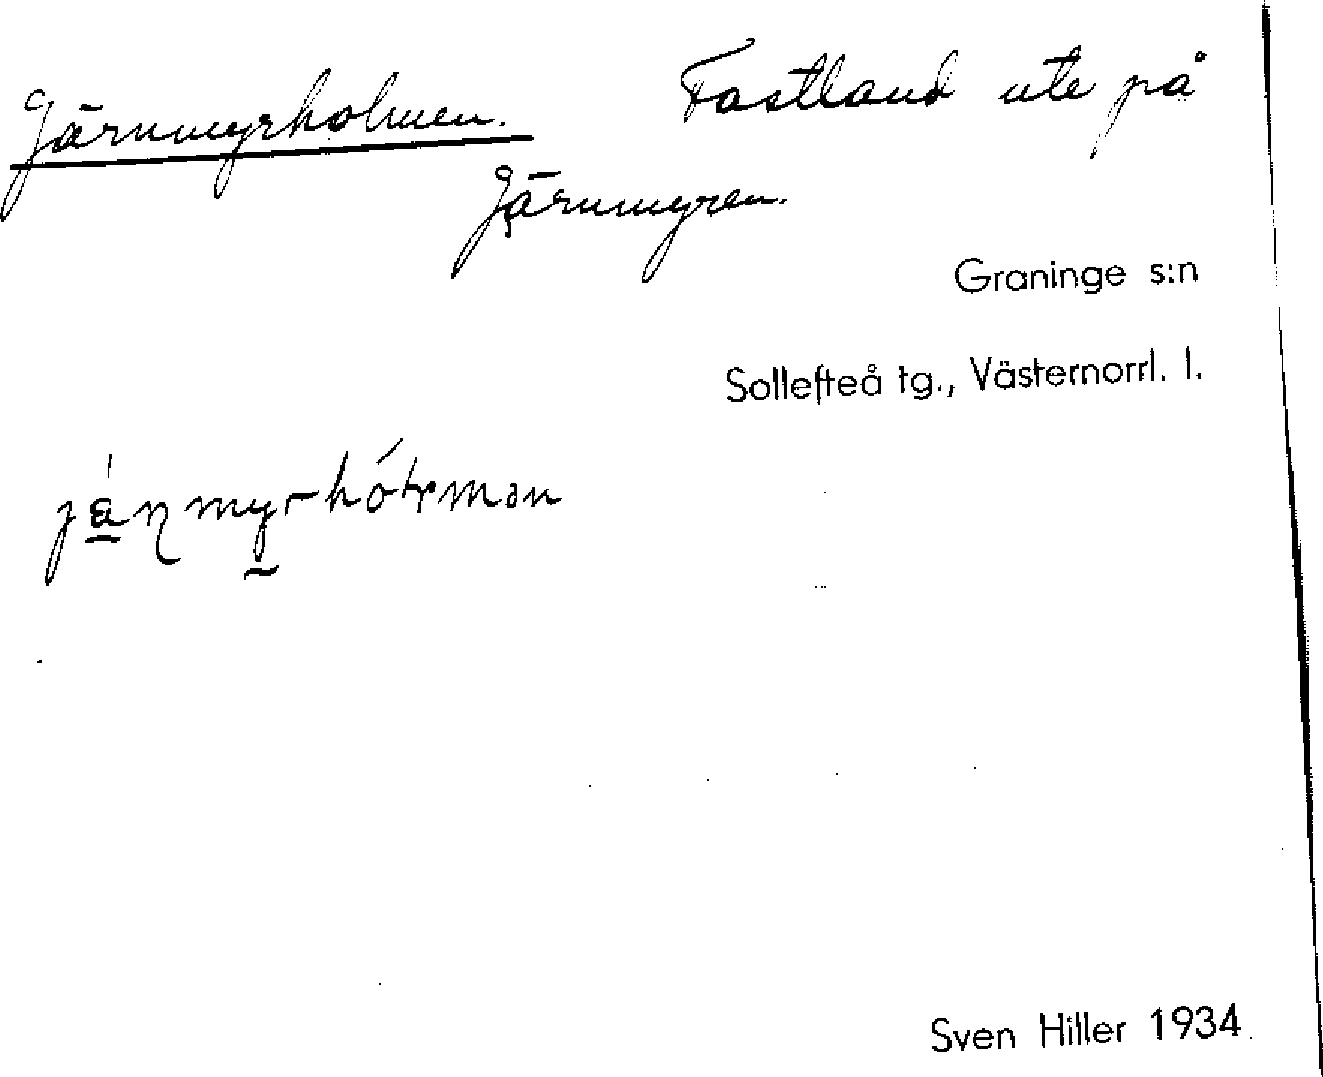 Järnmyrholmen. Fastland ute på
Järnmyren.
Graninge s:n
Sollefteå tg., Västernorrl. l.
Sven Hiller 1934